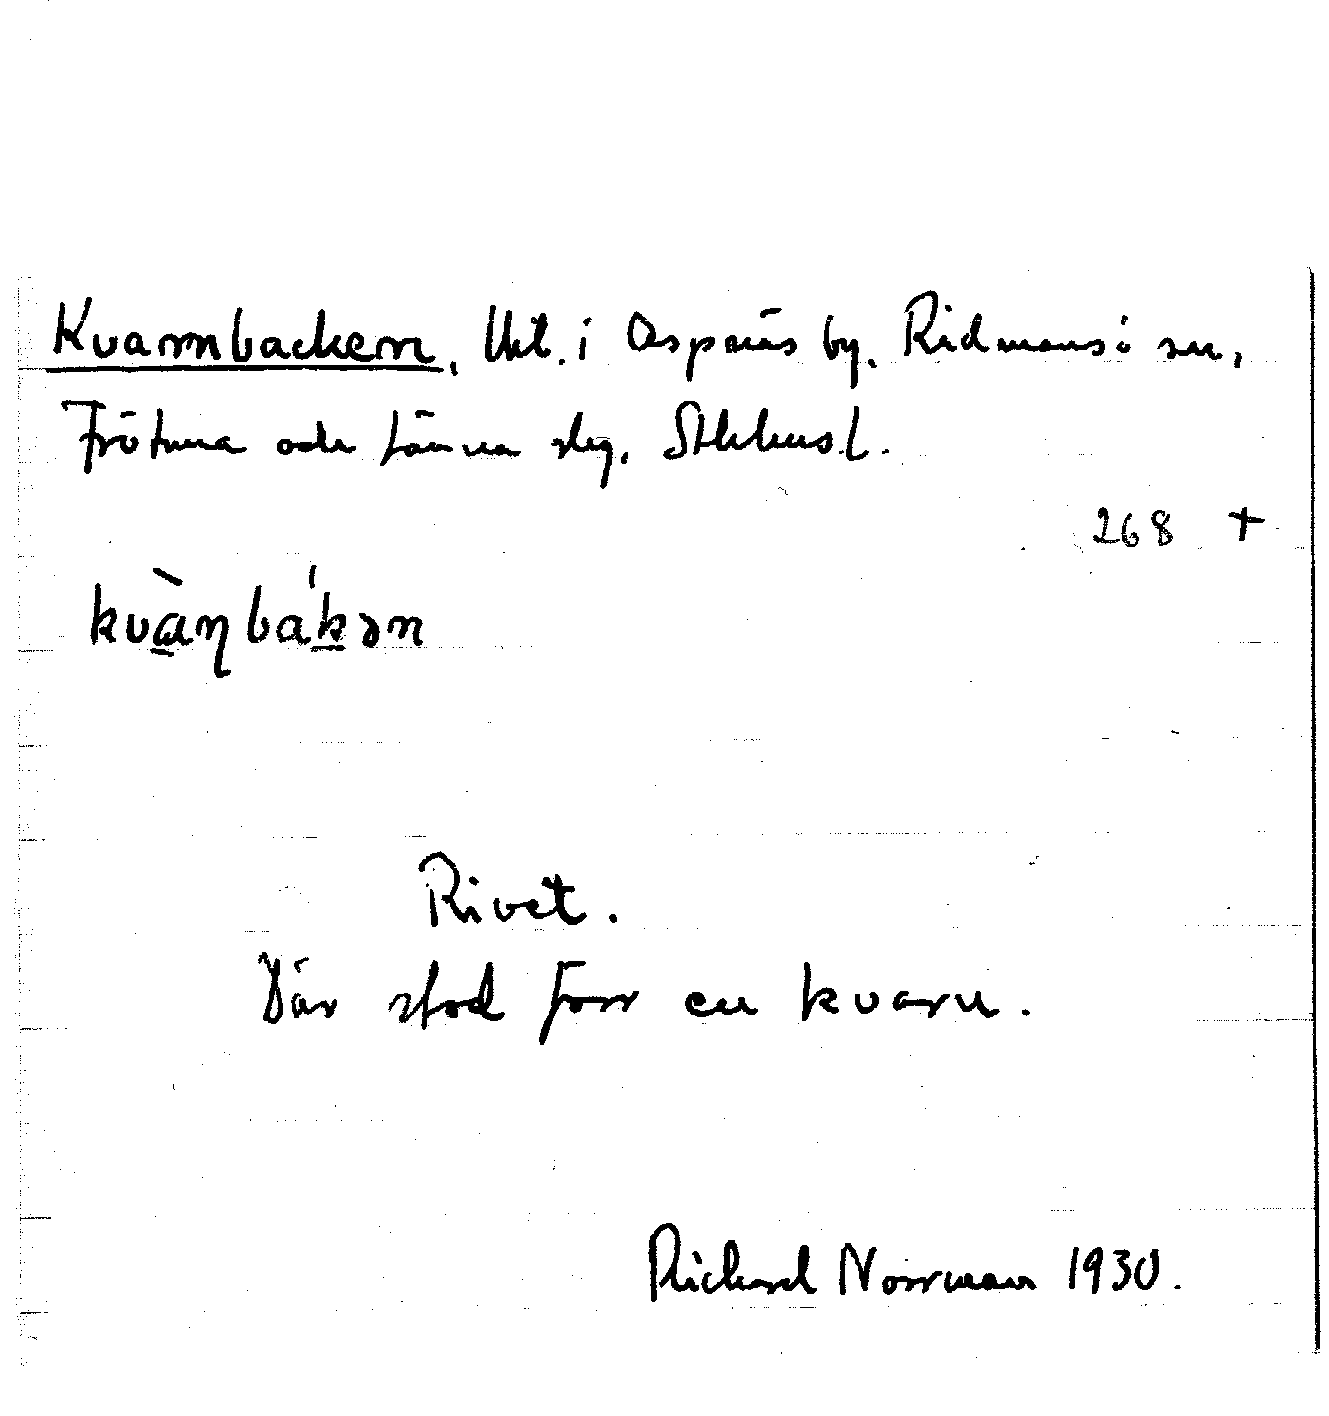 Kvarnbacken, Utl. i Aspnäs by, Rådmansö sn,
Frötuna och Länna slg, Sthlms l.
268 +
kvàɳbákən
Rivet.
Där stod förr en kvarn.
Richard Norrman 1930.